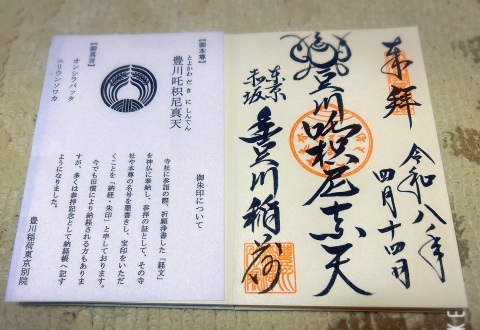 奉拝
令和八年
四月十四日
豊川吒枳尼真天
東京
赤坂
豊川稲荷
【御本尊】
とよかわ だ き に しんてん
豊川吒枳尼真天
【御真言】
オンシラバッタ
ニリウンソワカ
御朱印について
寺社に参詣の際、祈願浄書した『経文』
を神仏に奉納し、参拝の証として、その寺
社や本尊の名号を墨書きし、宝印をいただ
くことを『納経・朱印』と申しております。
今でも旧慣により納経される方もありま
すが、多くは参拝記念として納経帳へ記す
ようになりました。
豊川稲荷東京別院